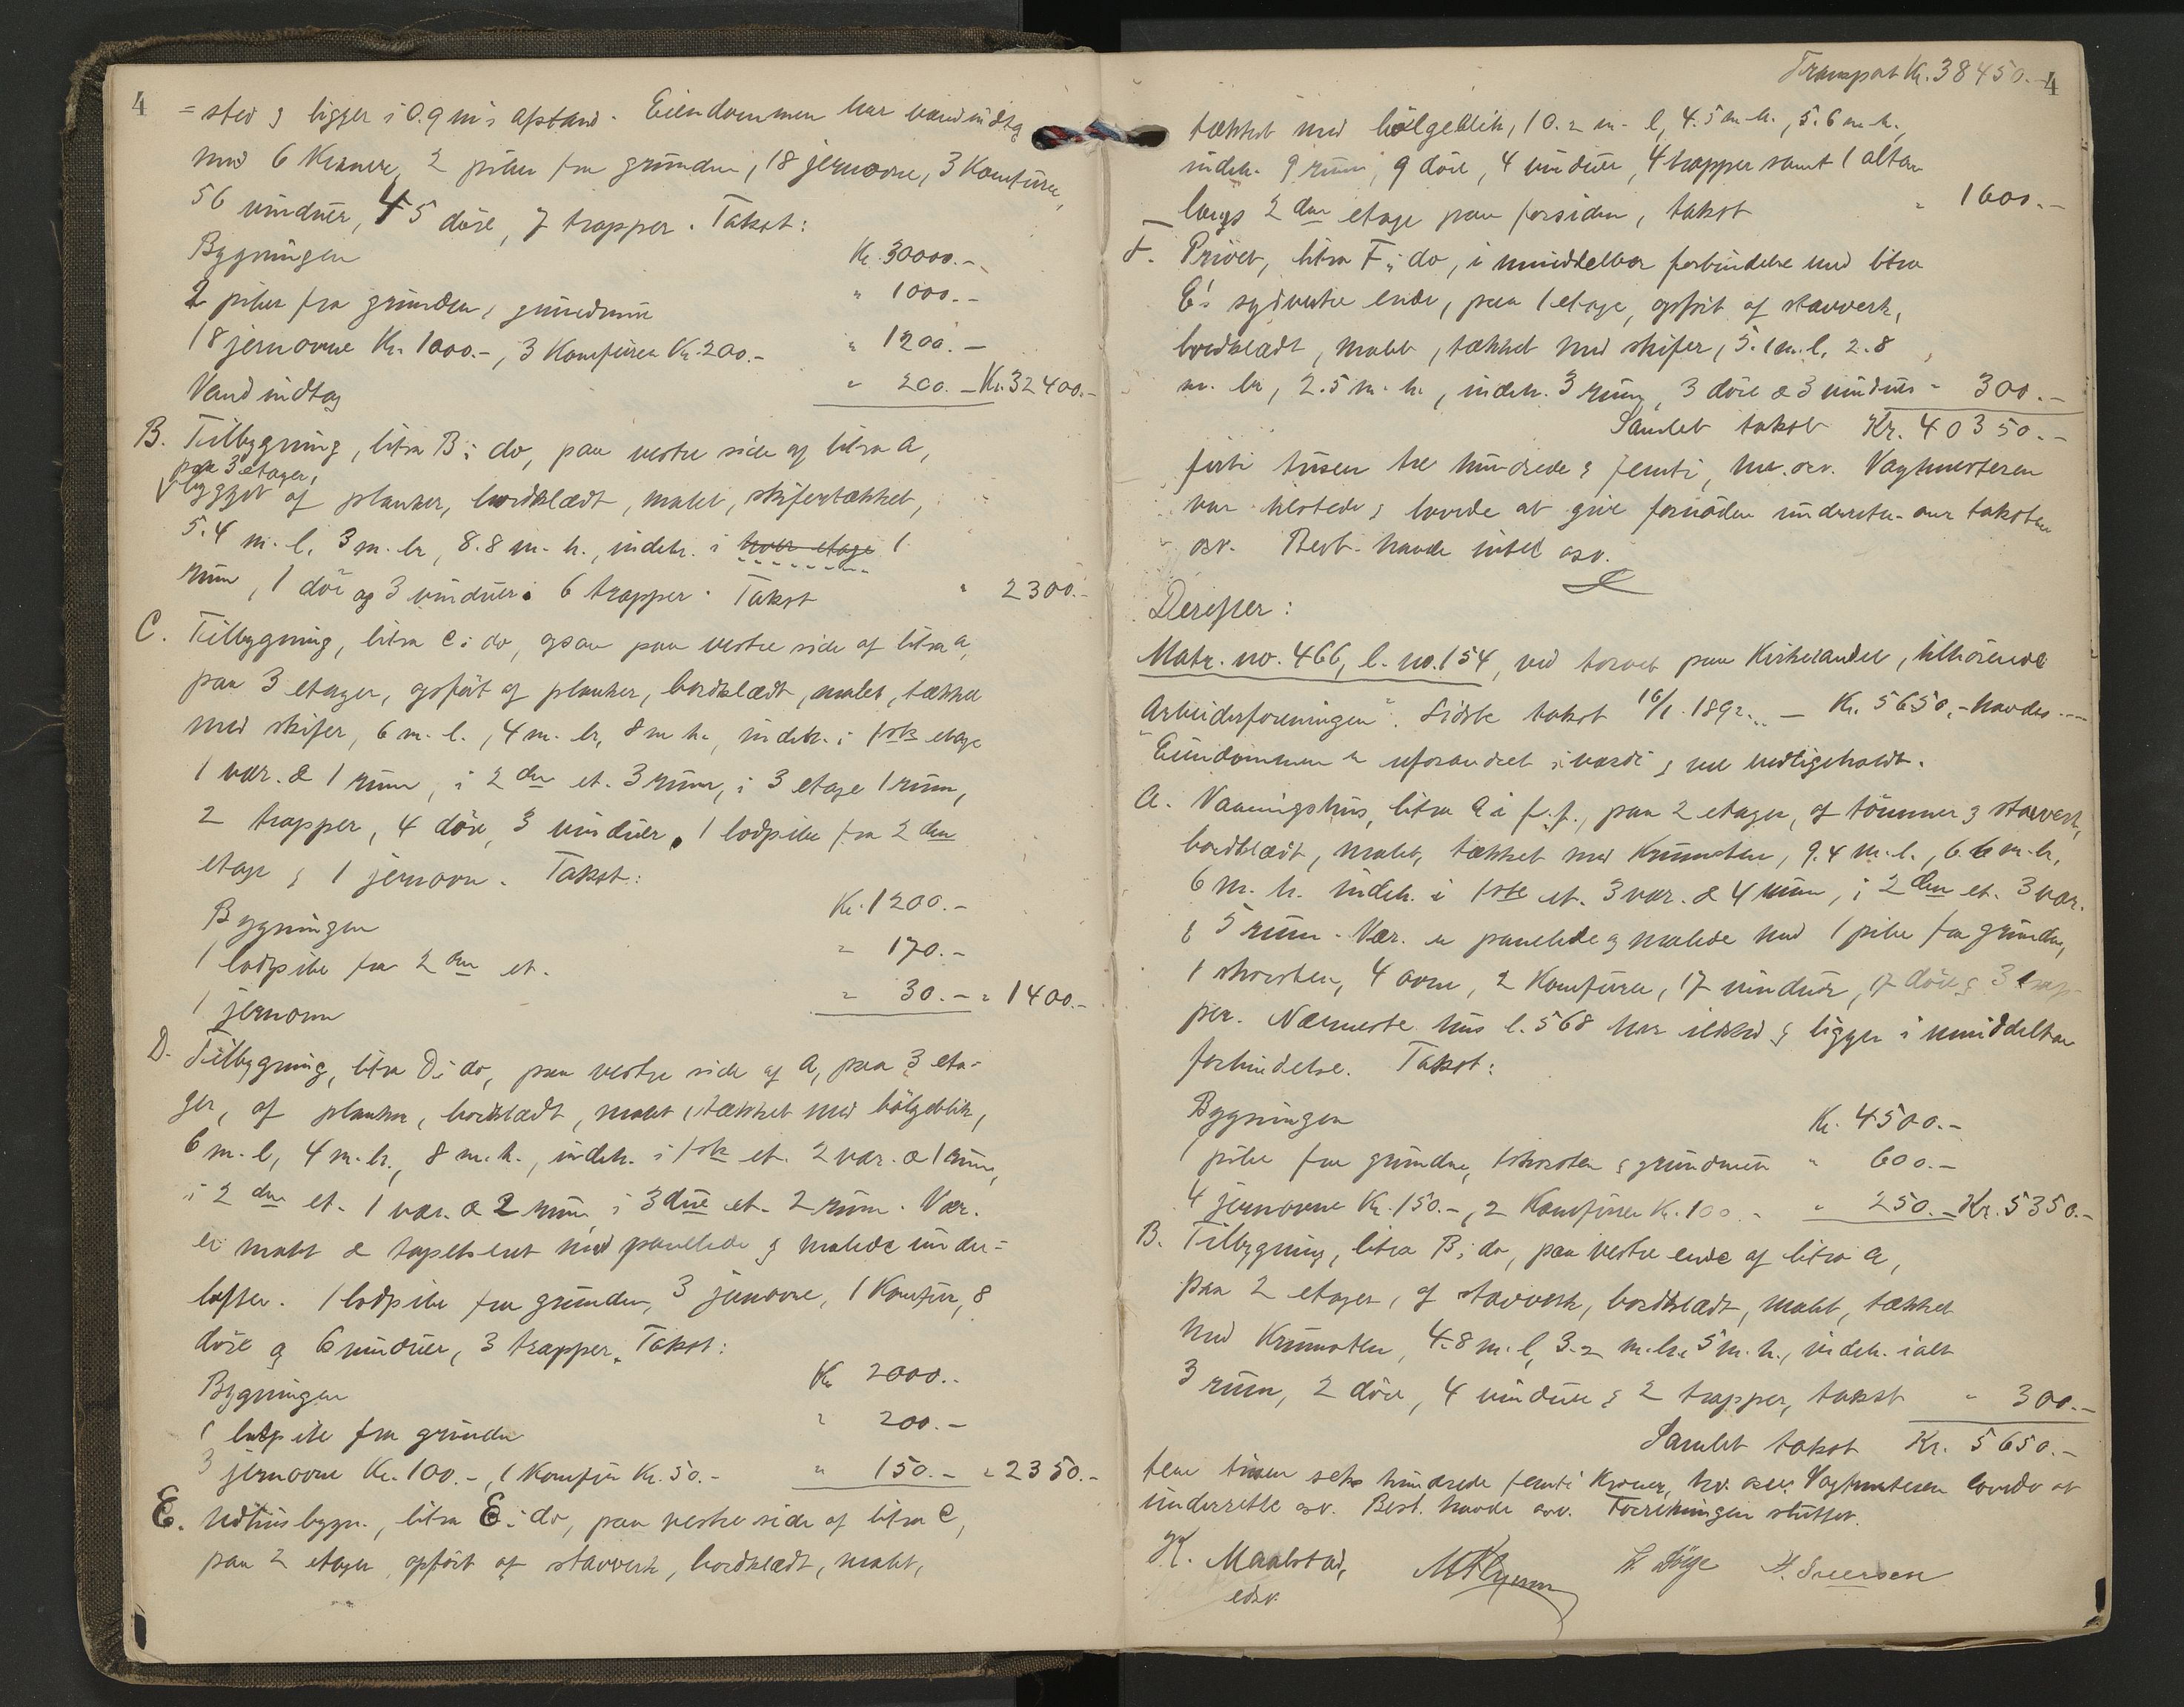 4
=sted & ligger i 0.9 m's afstand. Eiendommen har vandindtag
med 6 Kraner, 2 piber fra grunden, 18 jernovne, 3 Komfurer,
56 vinduer, 45 döre, 7 trapper. Takst:
Bygningen Kr. 30000.-
2 piber fra grunden, grundmur " 1000.-
18 jernovne Kr. 1000.-, 3 Komfurer Kr. 200.- " 1200.-
Vandindtag " 200.- Kr. 32400.-
B. Tilbygning, litra B i do, paa vestre side af litra A,
paa 3 etager,
bygget af planker, bordklædt, malet, skifertækket,
5.4 m. l. 3 m. br, 8.8 m. h., indeh. i hver etage 1
rum, 1 dör og 3 vinduer. 6 trapper. Takst " 2300.-
C. Tilbygning, litra C i do, ogsaa paa vestre side af litra A,
paa 3 etager, opfört af planker, bordklædt, malet, tækket
med skifer, 6 m. l., 4 m. br, 8 m h., indeh. i 1ste etage
1 vær. & 1 rum, i 2den et. 3 rum, i 3 etage 1 rum,
2 trapper, 4 döre, 3 vinduer, 1 lodpibe fra 2den
etage & 1 jernovn. Takst:
Bygningen Kr. 1200.-
1 lodpibe fra 2den et. " 170.-
1 jernovn " 30.- " 1400.-
D. Tilbygning, litra D i do, paa vestre side af A, paa 3 eta-
ger, af planker, bordklædt, malet, tækket med bölgeblik,
6 m. l, 4 m. br., 8 m. h., indeh. i 1ste et. 2 vær. & 1 rum,
i 2den et. 1 vær. & 2 rum, i 3die et. 2 rum. Vær.
er malet & tapetseret med panelede & malede under=
lofter. 1 lodpibe fra grunden, 3 jernovne, 1 Komfur, 8
döre og 6 vinduer, 3 trapper. Takst:
Bygningen Kr 2000.-
1 lodpibe fra grunden " 200.-
3 jernovne Kr. 100.-, 1 Komfur Kr. 50.- " 150.- " 2350.-
E. Udhusbygn., litra E i do, paa vestre side af litra C,
paa 2 etager, opfört af stavverk, bordklædt, malet,
Transport Kr. 38450.- 4
tækket med bölgeblik, 10.2 m. l, 4.5 m. br., 5.6 m. h.,
indeh. 9 rum, 9 döre, 4 vinduer, 4 trapper samt 1 altan
langs 2den etage paa forsiden, takst " 1600.-
F. Privet, litra F i do, i umiddelbar forbindelse med litra
E's sydvestre ende, paa 1 etage, opfört af stavverk,
bordklædt, malet, tækket med skifer, 5.1 m. l, 2.8
m. br, 2.5 m. h., indeh. 3 rum, 3 döre & 3 vinduer " 300.-
Samlet takst Kr. 40350.-
firti tusen tre hundrede & femti, kr. osv. Vagtmesteren
var tilstede & lovede at give fornöden underretn. om taksten
osv. Best. havde intet osv.
Derefter:
Matr. no. 466, l. no. 154, ved torvet paa Kirkelandet, tilhörende
"Arbeiderforeningen". Sidste takst 16/1. 1892 - Kr. 5650,- havdes
Eiendommen er uforandret i værdi & vel vedligeholdt.
A. Vaaningshus, litra A i f.f., paa 2 etager, af tömmer & stavverk,
bordklædt, malet, tækket med Krumsten, 9.4 m. l., 6.6 m. br,
6 m. h. indeh. i 1ste et. 3 vær. & 4 rum, i 2den et. 3 vær.
& 5 rum. Vær. er panelede & malede med 1 pibe fra grunden,
1 skorsten, 4 ovne, 2 Komfurer, 17 vinduer, 17 döre & 3 trap-
per. Nærmeste hus l. 568 har ildsted & ligger i umiddelbar
forbindelse. Takst:
Bygningen Kr. 4500.-
1 pibe fra grunden, 1 skorsten & grundmur " 600.-
4 jernovne Kr. 150.-, 2 Komfurer Kr. 100.- " 250.- Kr. 5350.-
B. Tilbygning, litra B i do, paa vestre ende af litra A,
paa 2 etager, af stavverk, bordklædt, malet, tækket
med Krumsten, 4.8 m. l, 3.2 m. br. 5 m. h., indeh. ialt
3 rum, 2 döre, 4 vinduer & 2 trapper, takst " 300.-
Samlet takst Kr. 5650.-
fem tusen seks hundrede femti Kroner, hv. osv. Vagtmesteren lovede at
underrette osv. Best. havde osv. Forretningen sluttet.
K. Maalstad,
edsv.
H. Iversen